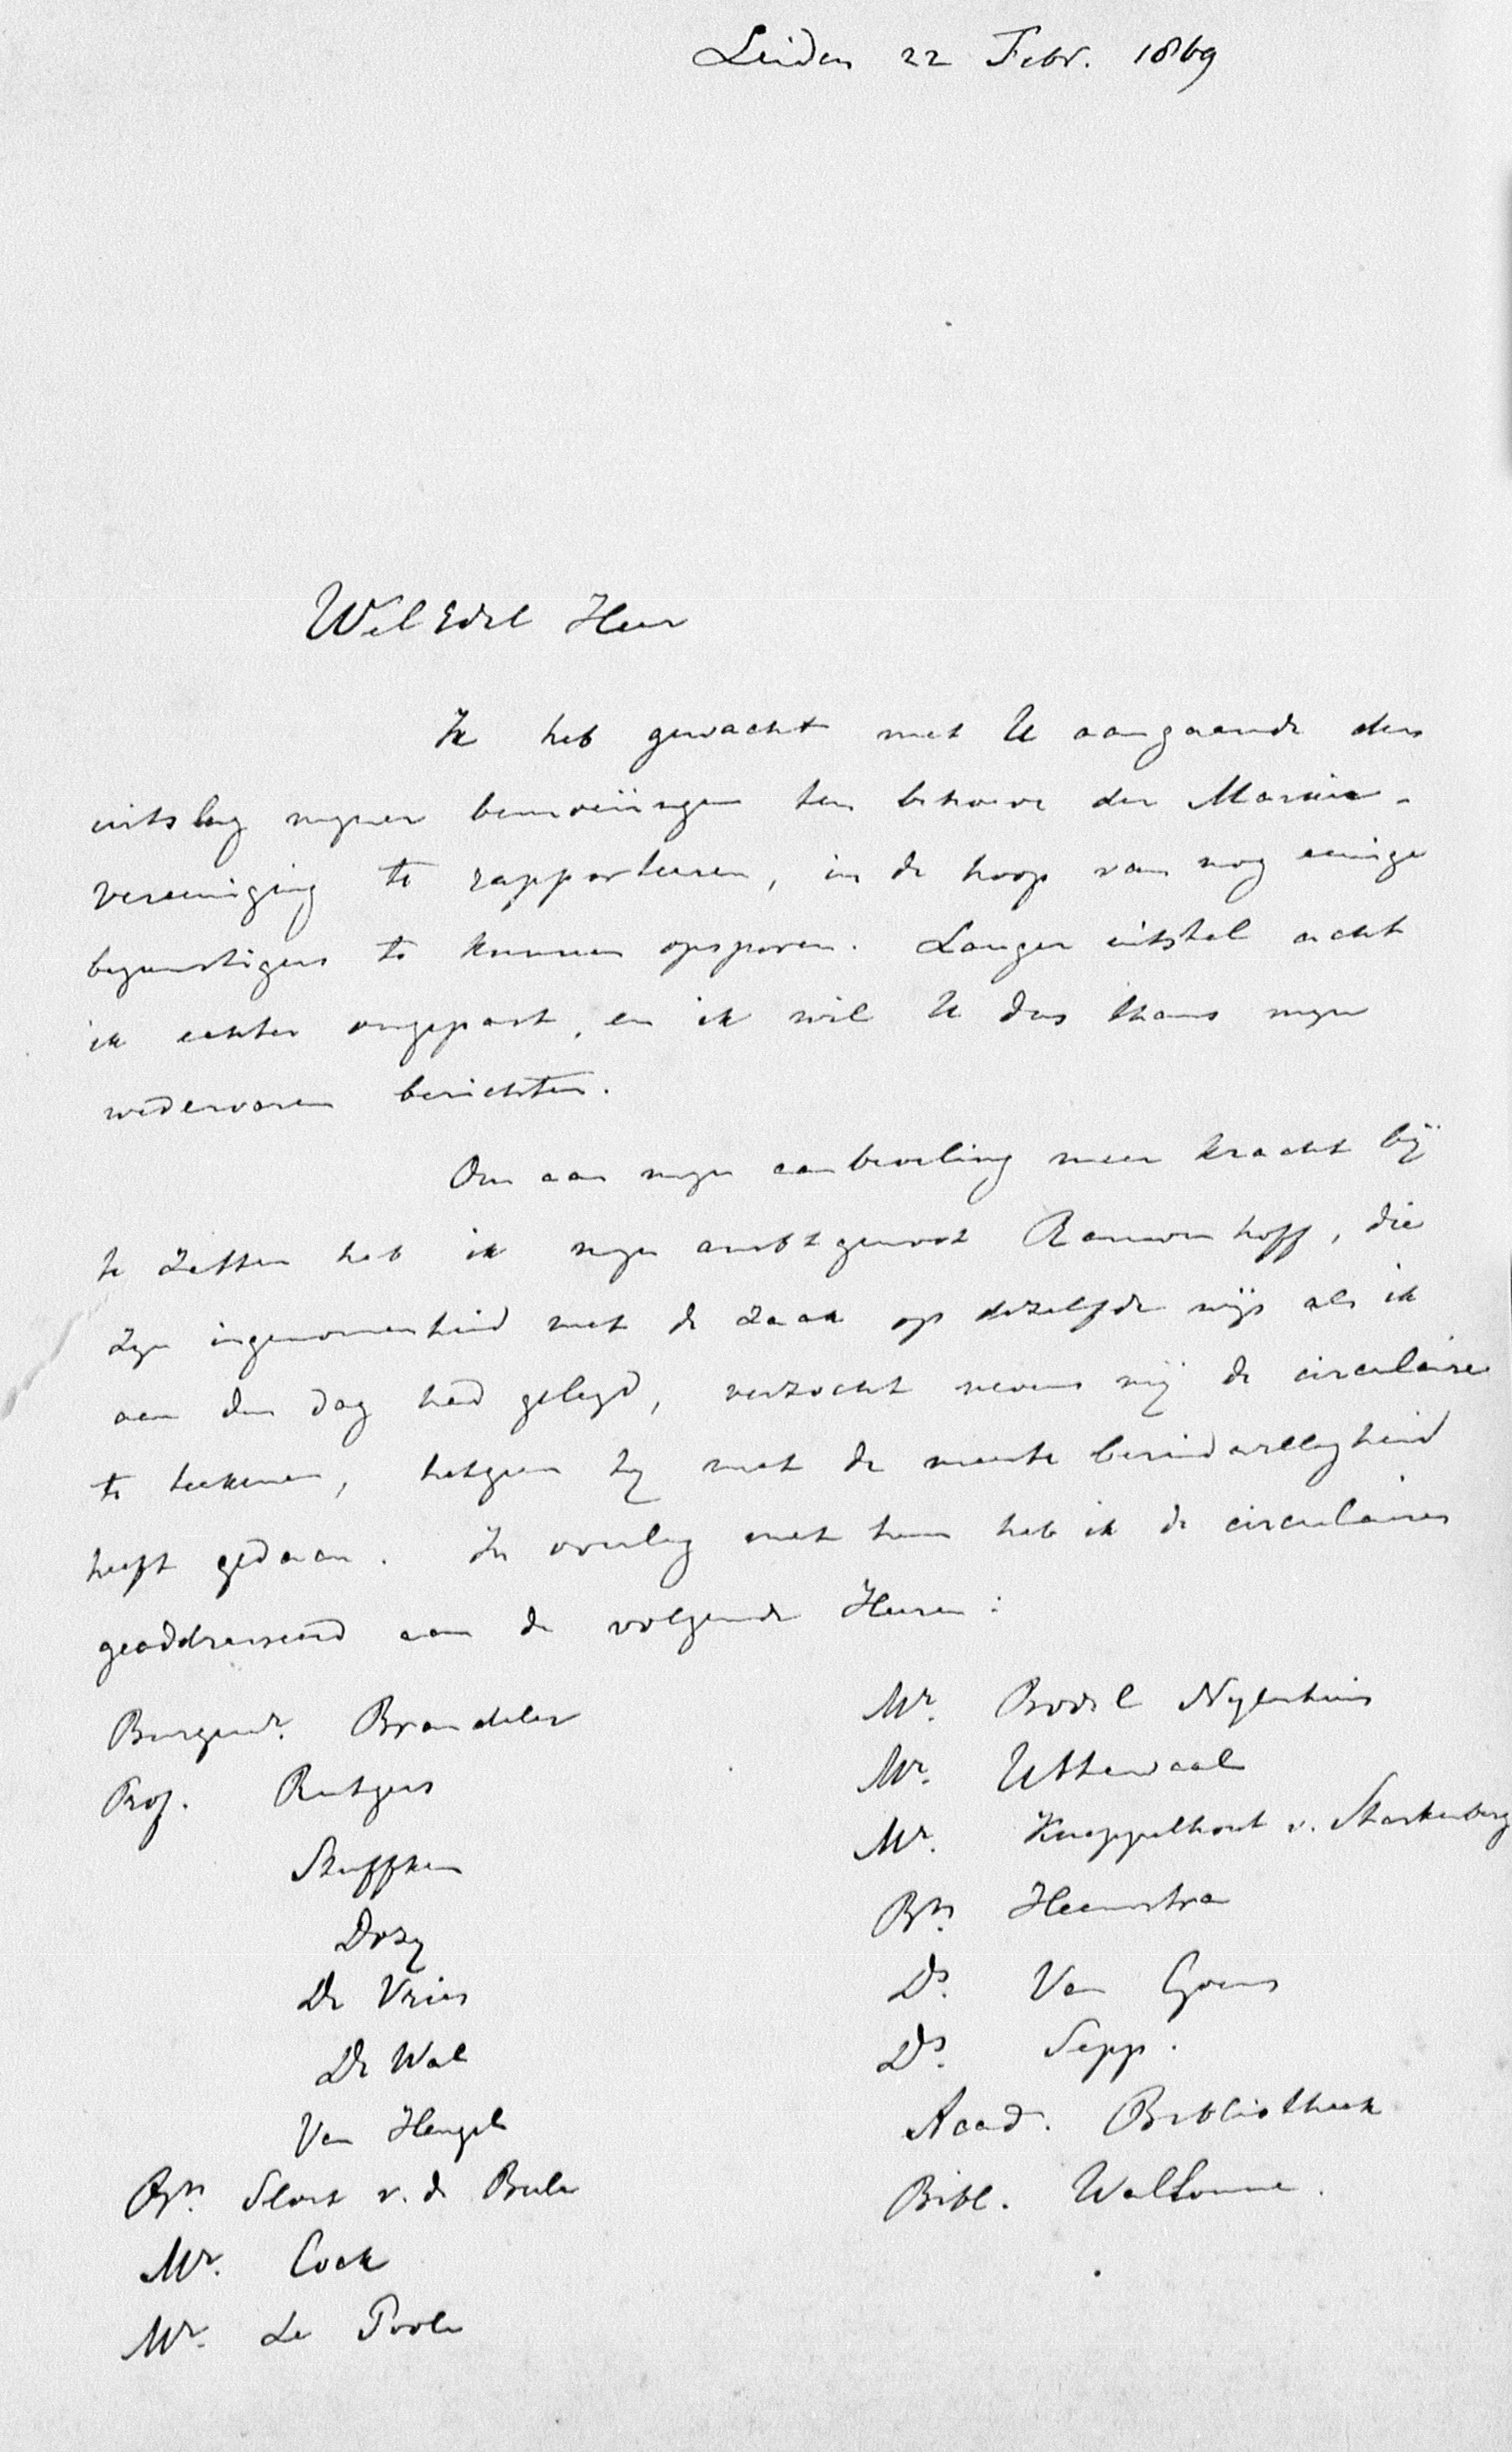 Leiden 22 Febr. 1869
WelEdel Heer
Ik heb gewacht met U aangaande den
uitslag mijner bemoeiingen ten behoeve der Marnix-
vereeniging te rapporteeren, in de hoop van nog eenige
begunstigers te kunnen opsporen. Langer uitstel acht
ik echter ongepast, en ik wil U dus thans mijn
wedervaren berichten.
Om aan mijn aanbeveling meer kracht bij
te zetten heb ik mijn ambtgenoot Rauwenhoff, die
zijn ingenomenheid met de zaak op dezelfde wijs als ik
aan den dag had gelegd, verzocht nevens mij de circulaire
te teekenen, hetgeen hij met de meeste bereidwilligheid
heeft gedaan. In overleg met hem heb ik de circulaires
geaddresseerd aan de volgende Heeren:
Burgemr. Brandeler
Prof. Rutgers
Stuffken
Dozy
De Vries
De Wal
Van Hengel
Bn. Sloet v. d. Beele
Mr. Cock
Mr. Le Poole
Mr. Bodel Nyenhuis
Mr. Uttewaal
Mr. Kneppelhout v. Sterkenburg
Bn. Heemstra
Ds. Van Goens
Ds. Sepp.
Acad. Bibliotheek
Bibl. Wallonne.